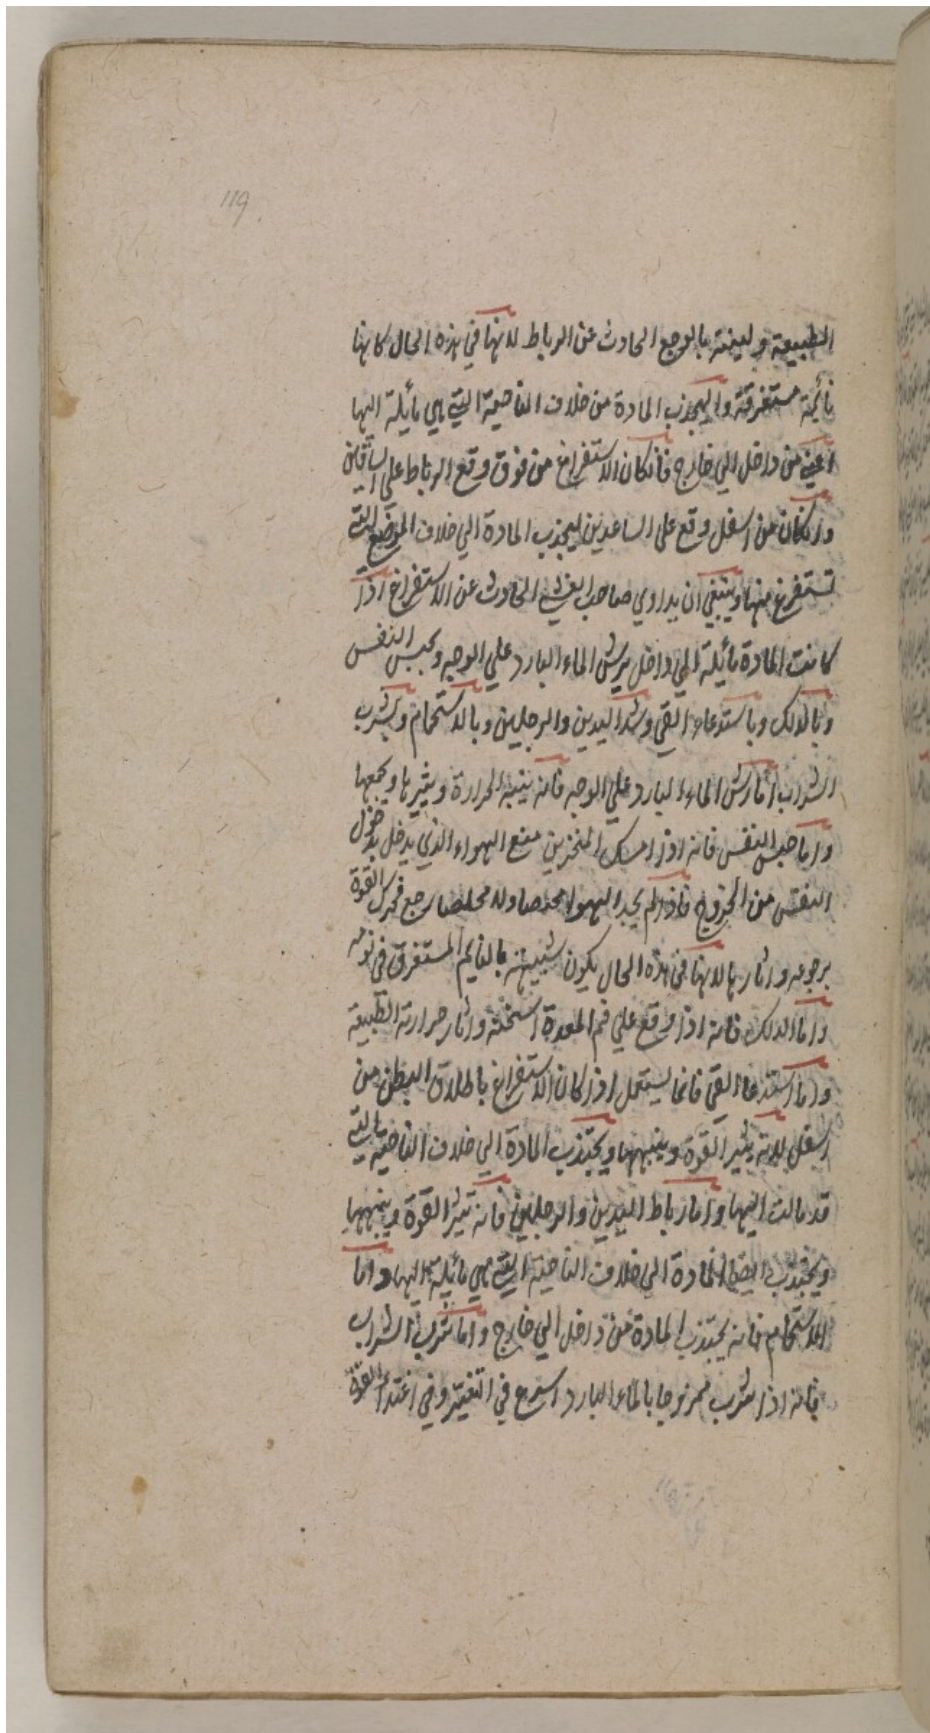 119
الطبيعة ولينبه بالوجع الحادث عن الرباط لانها في هذه الحال كانها
نائمة مستغرقة واليجذب المادة من خلاف الناحية التي هي مائلة اليها
اعني من داخل الي خارج فانكان الاستفراغ من فوق وقع الرباط على الساقين
وانكان من اسفل وقع على الساعدين ليجذب المادة الي خلاف الموضع التي
تستفرغ منها وينبغي ان يداوي صاحب الغشي الحادث عن الاستفراغ اذا
كانت المادة مائلة الي داخل برش الماء البارد علي الوجه وبحبس النفس
وبالدلك وباستدعاء القي وشد اليدين والرجلين وبالاستحمام وبشرب
الشراب اما رش الماء البارد علي الوجه فانه ينبه الحرارة ويثيرها ويجمعها
واما حبس النفس فانه اذا امسك المنخرين منع الهواء الذي يدخل بدخول
النفس من الخروج فاذا لم يجد الهوا مخلصا رجع فحرك القوة
برجوعه واثارها لانها في هذه الحال يكون شبيهة بالنايم المستغرق في نومه
واما الدلك فانه اذا وقع علي فم المعدة اسخنه واثار حرارته الطبيعة
واما استدعا القي فانما يستعمل اذا كان الاستفراغ باطلاق البطن من
اسفل لانه يثير القوة وينبهها ويجتذب المادة الي خلاف الناحية التي
قد مالت اليها واما رباط اليدين والرجلين فانه تثير القوة وينبهها
ويجتذب ايضا المادة الي خلاف الناحية التي هي مائلة اليها واما
الاستحمام فانه يجتذب المادة من داخل الي خارج واما شرب الشراب
فانه اذا شرب ممزوجا بالماء البارد اسرع في التغير وفي اغتداء القوة